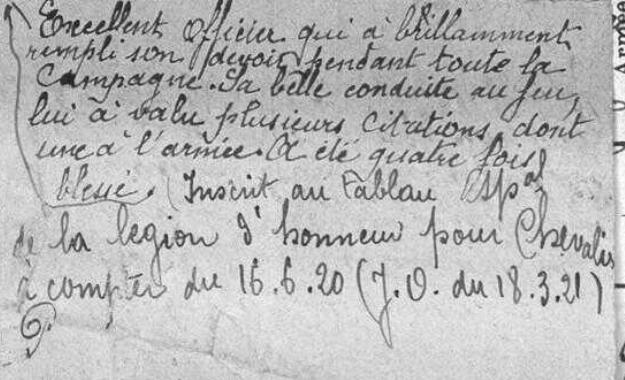 Excellent Officier qui à brillamment
rempli son devoir pendant toute la
Campagne. Sa belle conduite au feu,
lui à valu plusieurs citations dont
une à l'armée. A été quatre fois
blessé. (Inscrit au tablau Spal
de la legion d'honneur pour Chevalier
à compter du 16.6.20 (J.O. du 18.3.21)